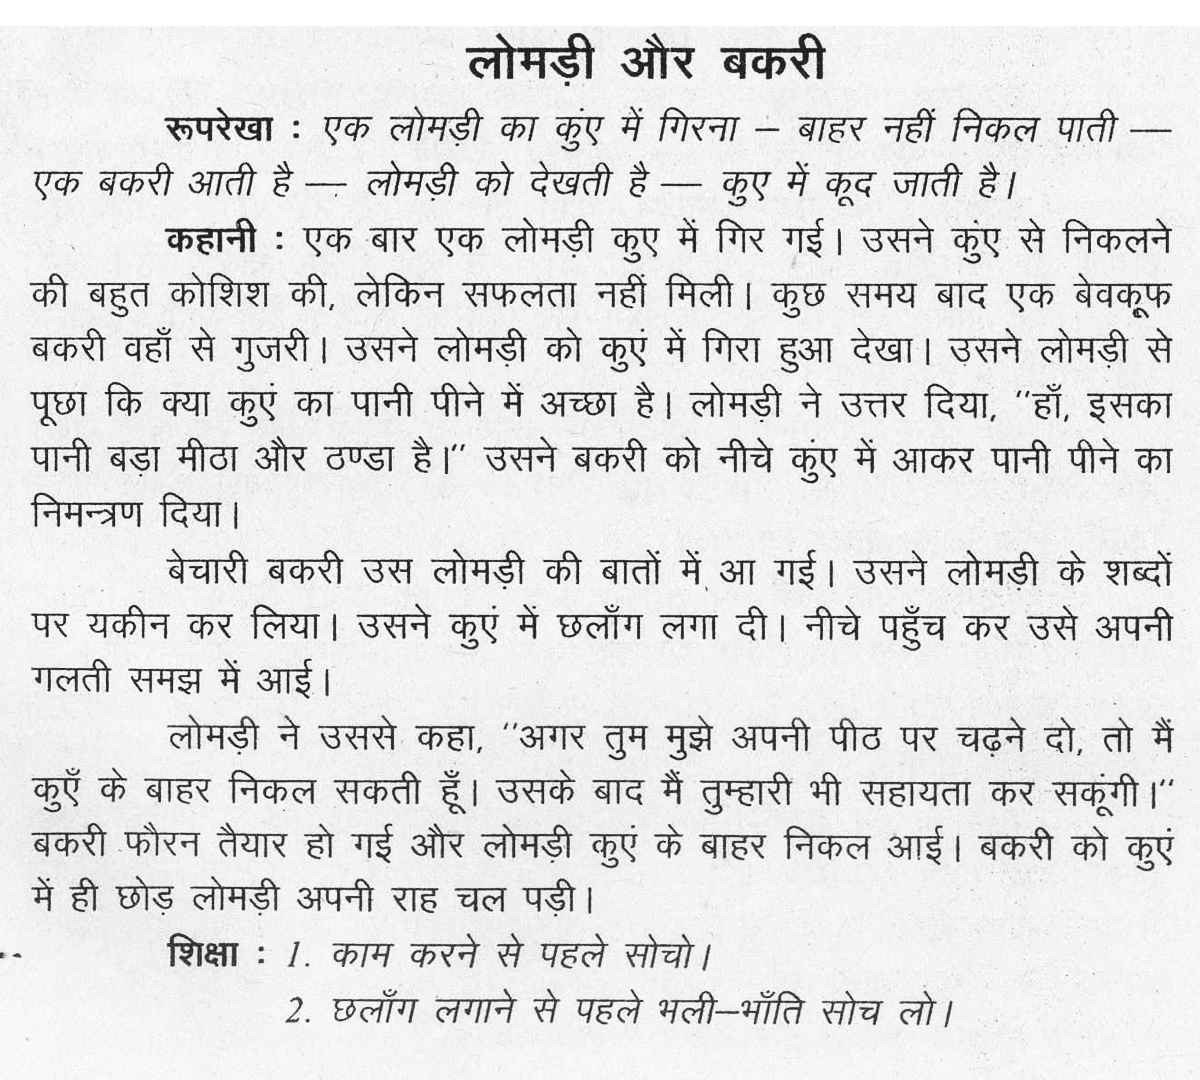 लोमड़ी और बकरी
रूपरेखा : एक लोमड़ी का कुंए में गिरना – बाहर नहीं निकल पाती —
एक बकरी आती है — लोमड़ी को देखती है — कुए में कूद जाती है।
कहानी : एक बार एक लोमड़ी कुए में गिर गई। उसने कुंए से निकलने
की बहुत कोशिश की, लेकिन सफलता नहीं मिली। कुछ समय बाद एक बेवकूफ
बकरी वहाँ से गुजरी। उसने लोमड़ी को कुएं में गिरा हुआ देखा। उसने लोमड़ी से
पूछा कि क्या कुएं का पानी पीने में अच्छा है। लोमड़ी ने उत्तर दिया, ''हाँ, इसका
पानी बड़ा मीठा और ठण्डा है।'' उसने बकरी को नीचे कुंए में आकर पानी पीने का
निमन्त्रण दिया।
बेचारी बकरी उस लोमड़ी की बातों में आ गई। उसने लोमड़ी के शब्दों
पर यकीन कर लिया। उसने कुएं में छलाँग लगा दी। नीचे पहुँच कर उसे अपनी
गलती समझ में आई।
लोमड़ी ने उससे कहा, ''अगर तुम मुझे अपनी पीठ पर चढ़ने दो, तो मैं
कुएँ के बाहर निकल सकती हूँ। उसके बाद मैं तुम्हारी भी सहायता कर सकूंगी।''
बकरी फौरन तैयार हो गई और लोमड़ी कुएं के बाहर निकल आई। बकरी को कुएं
में ही छोड़ लोमड़ी अपनी राह चल पड़ी।
शिक्षा : 1. काम करने से पहले सोचो।
2. छलाँग लगाने से पहले भली–भाँति सोच लो।